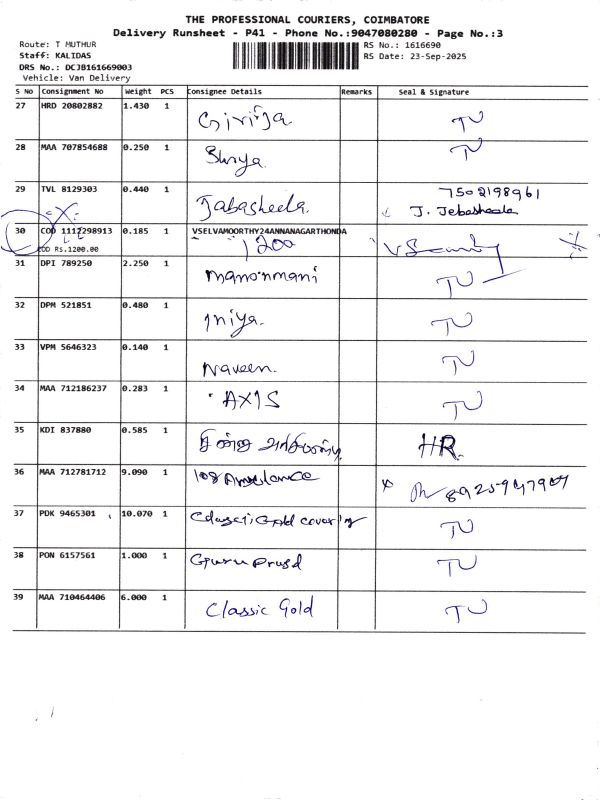 THE PROFESSIONAL COURIERS, COIMBATORE
Delivery Runsheet - P41 - Phone No.:9047080280 - Page No.:3
Route: T MUTHUR
RS No.: 1616690
Staff: KALIDAS
RS Date: 23-Sep-2025
DRS No.: DCJB161669003
Vehicle: Van Delivery
S No Consignment No Weight PCS Consignee Details Remarks Seal & Signature
27 HRD 20802882 1.430 1 Girija TU
28 MAA 707854688 0.250 1 Surya TU
29 TVL 8129303 0.440 1 Jabasheela 7502198961
J. Jebasheela
30 COD 1112298913 0.185 1 VSELVAMOORTHY24ANNANAGARTHONDA
COD Rs.1200.00 1200
31 DPI 789250 2.250 1 Manonmani TU
32 DPM 521851 0.480 1 Iniya. TU
33 VPM 5646323 0.140 1 Naveen. TU
34 MAA 712186237 0.283 1 AXIS TU
35 KDI 837880 0.585 1 HR.
36 MAA 712781712 9.090 1 108 Ambulance Ph 8925947907
37 PDK 9465301 10.070 1 Gold covering TU
38 PON 6157561 1.000 1 Guru Prasd TU
39 MAA 710464406 6.000 1 Classic Gold TU